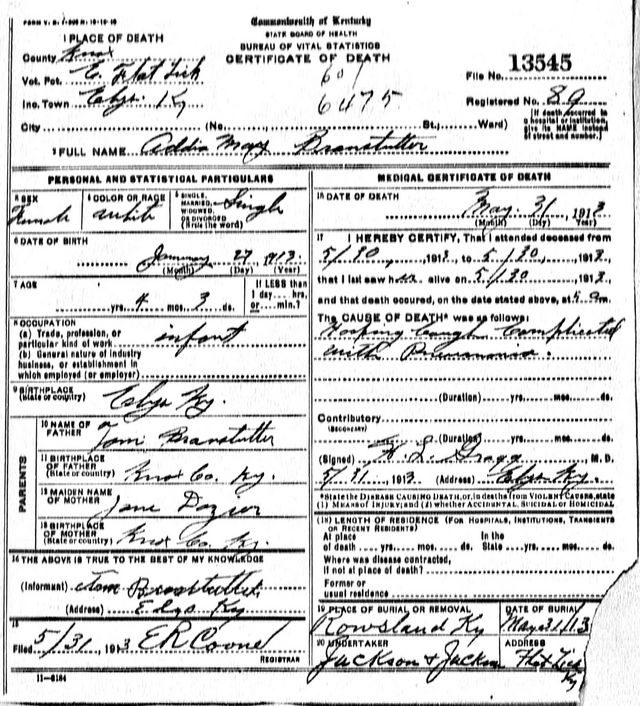 Commonwealth of Kentucky
STATE BOARD OF HEALTH
BUREAU OF VITAL STATISTICS
CERTIFICATE OF DEATH
1 PLACE OF DEATH
County Knox
Vot. Pct. E. Flat Lick
Inc. Town Elys Ky
City (No. St.; Ward)
601
6475
13545
File No.
Registered No. 80
[If death occurred in
a hospital or institution,
give its NAME instead
of street and number.]
2 FULL NAME Addie May Branstutter
PERSONAL AND STATISTICAL PARTICULARS
3 SEX Female
4 COLOR OR RACE white
5 SINGLE, MARRIED, WIDOWED, OR DIVORCED (Write the word) Single
6 DATE OF BIRTH
January 27, 1913
(Month) (Day) (Year)
7 AGE
yrs. 4 mos. 3 ds.
If LESS than
1 day hrs.
or min.?
8 OCCUPATION
(a) Trade, profession, or
particular kind of work infant
(b) General nature of industry
business, or establishment in
which employed (or employer)
9 BIRTHPLACE
(State or country) Elys Ky.
PARENTS
10 NAME OF
FATHER Tom Branstutter
11 BIRTHPLACE
OF FATHER
(State or country) Knox Co. Ky.
12 MAIDEN NAME
OF MOTHER Jane Dozier
13 BIRTHPLACE
OF MOTHER
(State or country) Knox Co. Ky.
14 THE ABOVE IS TRUE TO THE BEST OF MY KNOWLEDGE
(Informant) Tom Branstutter
(Address) Elys Ky
15
Filed 5/31, 1913 E R Coone
REGISTRAR
11-6184
MEDICAL CERTIFICATE OF DEATH
16 DATE OF DEATH
May 31, 1913
(Month) (Day) (Year)
17 I HEREBY CERTIFY, That I attended deceased from
5/30, 1913, to 5/30, 1913,
that I last saw her alive on 5/30, 1913,
and that death occured, on the date stated above, at 4 am.
The CAUSE OF DEATH* was as follows:
Hooping Cough Complicated
with Pneumonia.
(Duration) yrs. mos. ds.
Contributory
(SECONDARY)
(Duration) yrs. mos. ds.
(Signed) H L Gragg, M.D.
5/31, 1913 (Address) Elys Ky.
*State the DISEASE CAUSING DEATH, or, in deaths from VIOLENT CAUSES, state
(1) MEANS OF INJURY; and (2) whether ACCIDENTAL, SUICIDAL or HOMICIDAL
(18) LENGTH OF RESIDENCE (FOR HOSPITALS, INSTITUTIONS, TRANSIENTS
OR RECENT RESIDENTS)
At place In the
of death yrs. mos. ds. State yrs. mos. ds.
Where was disease contracted,
if not at place of death?
Former or
usual residence
19 PLACE OF BURIAL OR REMOVAL
Rowsland Ky
DATE OF BURIAL
May 31/13
20 UNDERTAKER
Jackson & Jackson
ADDRESS
Flat Lick
Ky